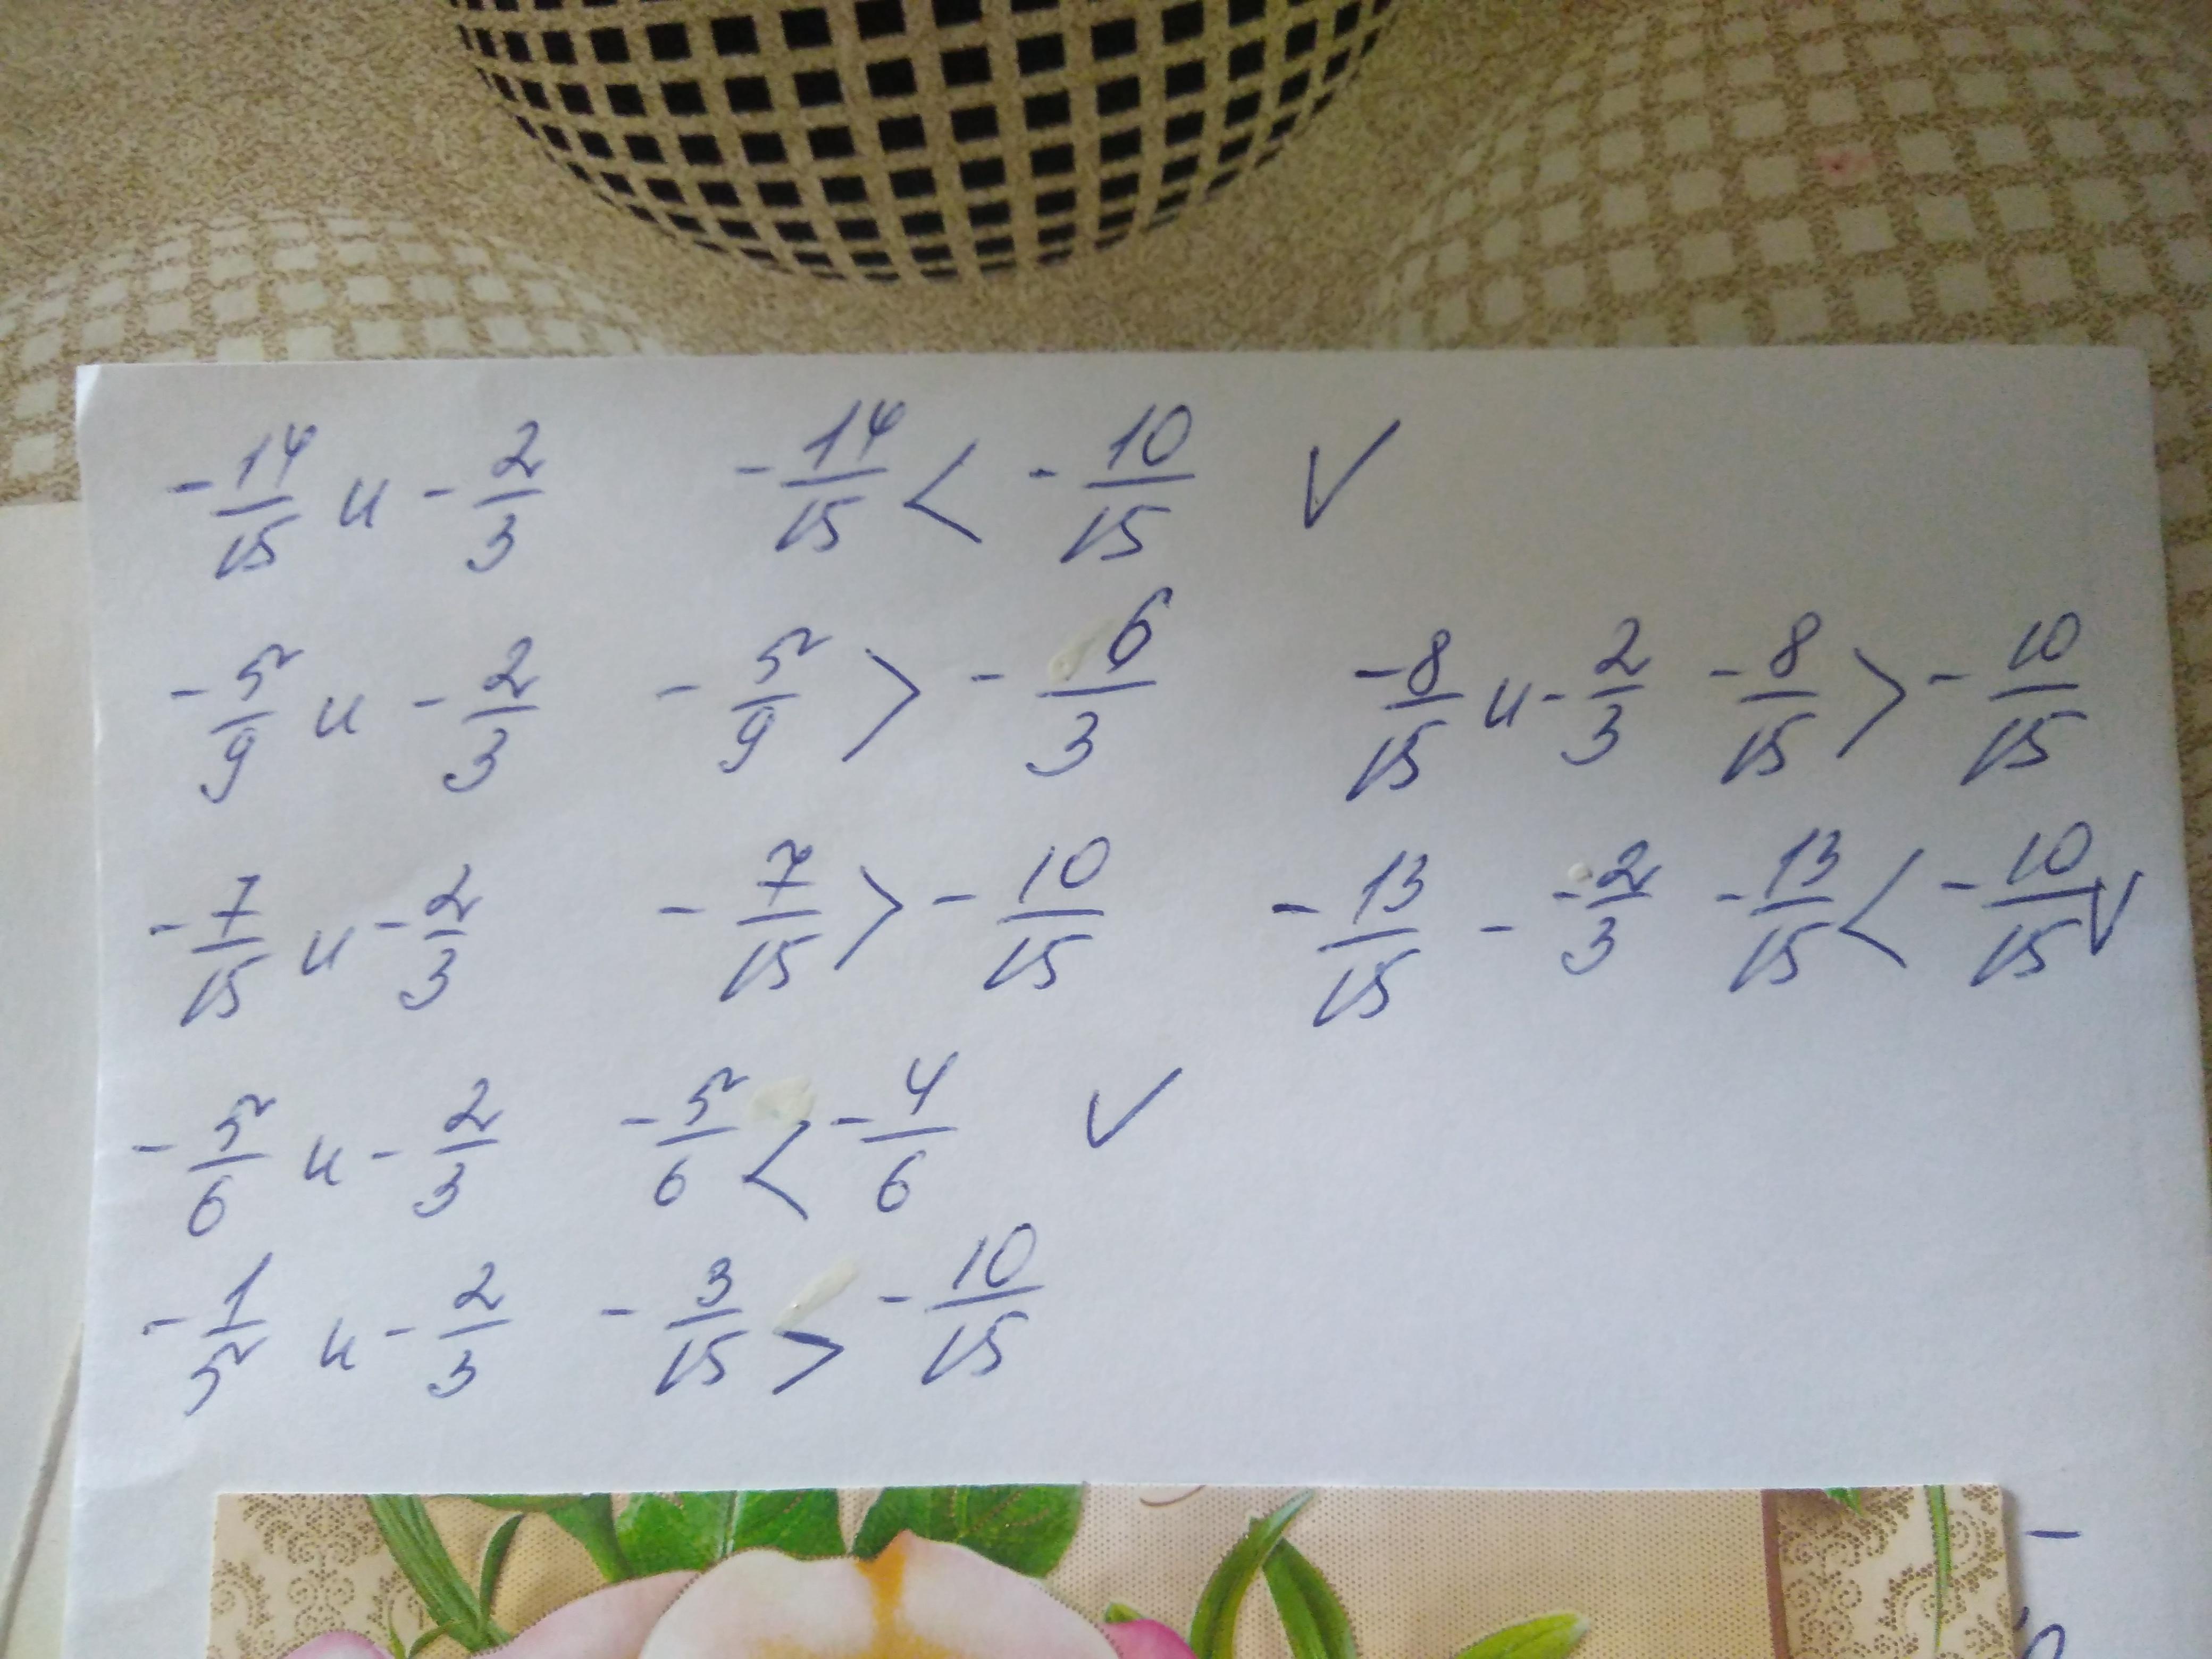 -14/15 и -2/3 -14/15 < -10/15 ✓
-5/9 и -2/3 -5/9 > -6/3 -8/15 и -2/3 -8/15 > -10/15
-7/15 и -2/3 -7/15 > -10/15 -13/15 - -2/3 -13/15 < -10/15 ✓
-5/6 и -2/3 -5/6 < -4/6 ✓
-1/5 и -2/3 -3/15 > -10/15